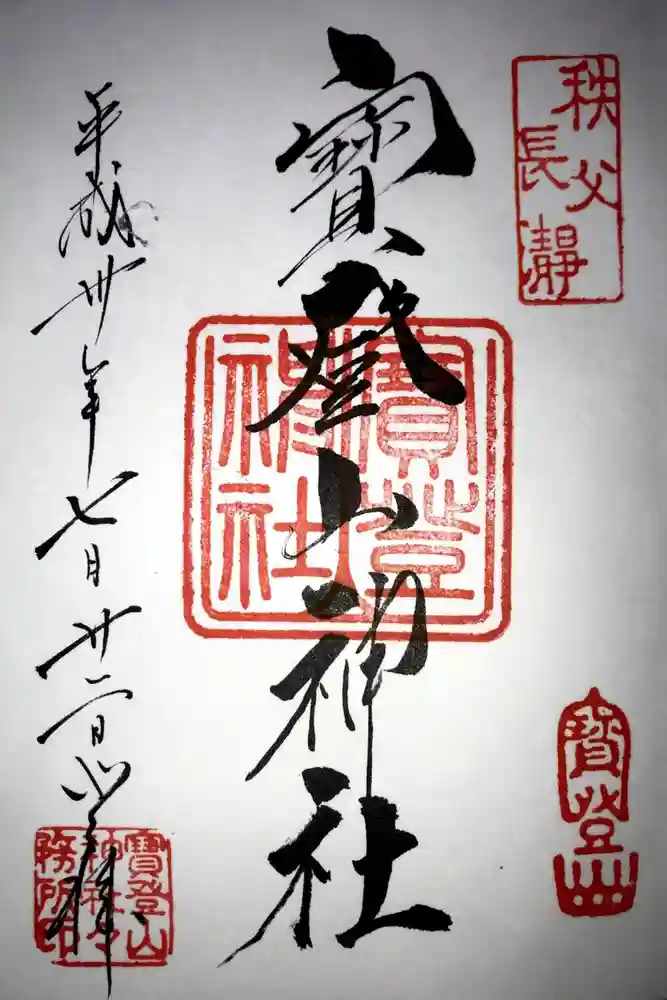 秩父
長瀞
寶登山
寶登山神社
寶登山
神社
平成卅年七月廿二日
寶登山
神社々
務所印